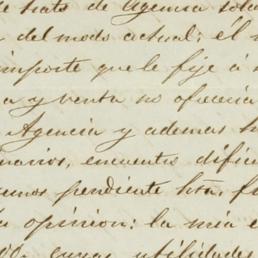 trata de Agencia sola
del modo actual; él
importe que le fije á
a y venta no ofrecería
Agencia y ademas h
narios, encuentro dificu
pendiente hta. f
opinion: la mia e
cuyas utilidades